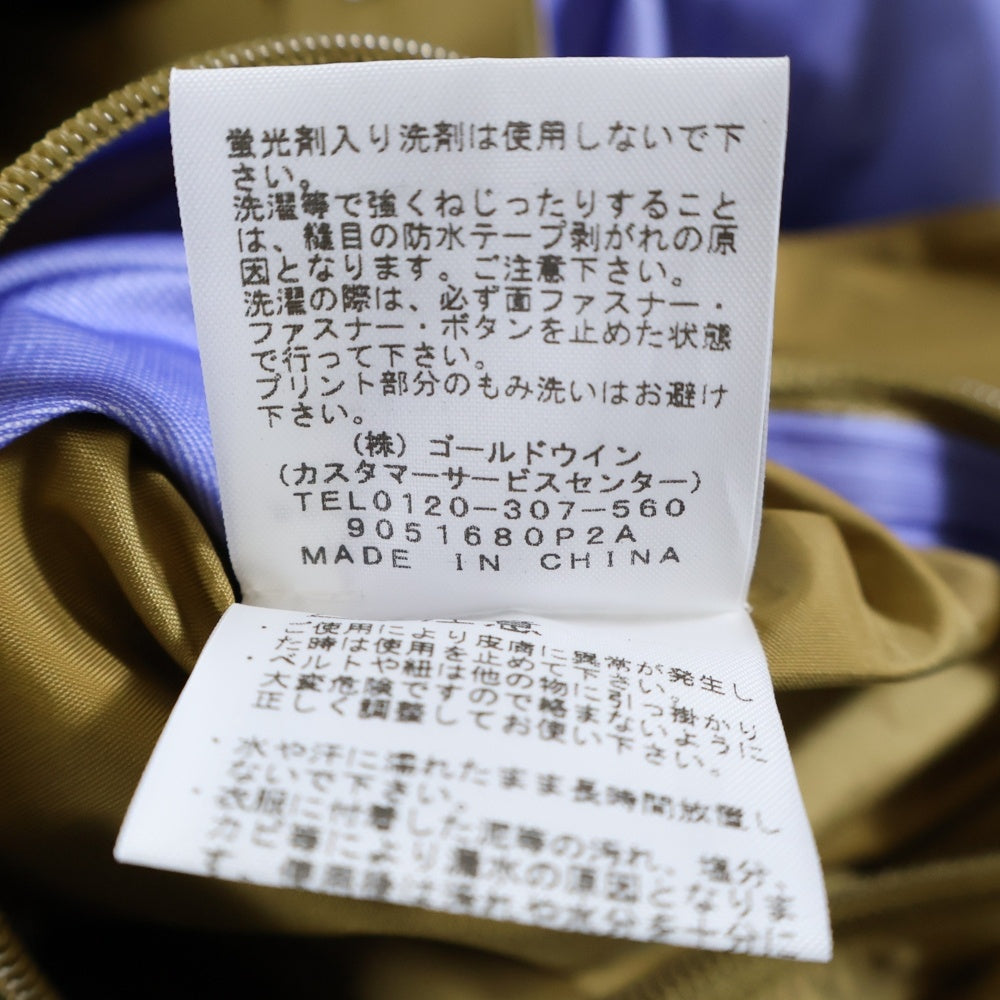 蛍光剤入り洗剤は使用しないで下
さい。
洗濯等で強くねじったりすること
は、縫目の防水テープ剥がれの原
因となります。ご注意下さい。
洗濯の際は、必ず面ファスナー・
ファスナー・ボタンを止めた状態
で行って下さい。
プリント部分のもみ洗いはお避け
下さい。
(株) ゴールドウイン
(カスタマーサービスセンター)
TEL0120-307-560
9051680P2A
MADE IN CHINA
注意
・ご使用により皮膚に異常が発生し
た時は使用を止めて下さい。
・ベルトや紐は他の物に引っ掛かり
大変危険ですので絡まないように
正しく調整してお使い下さい。
・水や汗に濡れたまま長時間放置し
ないで下さい。
・衣服に付着した泥等の汚れ、塩分、
カビ等により漏水の原因となりま